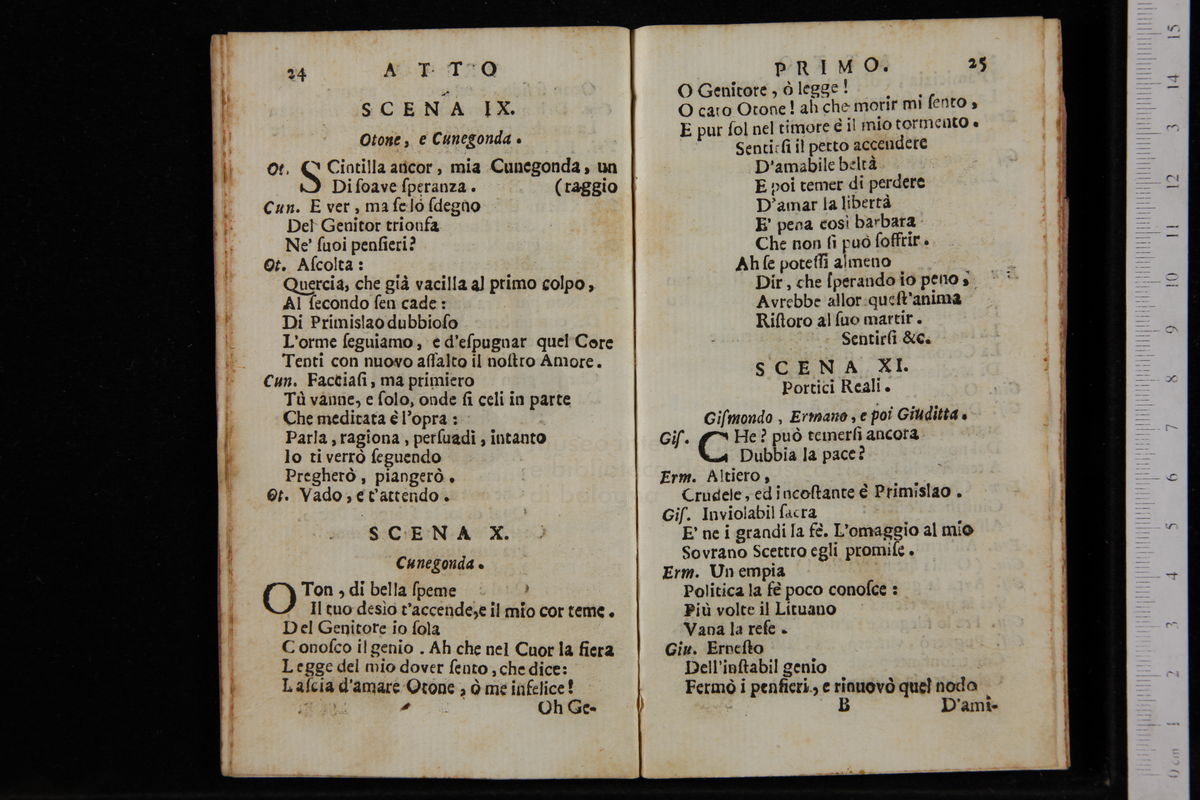 24 ATTO
SCENA IX.
Otone, e Cunegonda.
Ot. SCintilla ancor, mia Cunegonda, un
Di ſoave ſperanza. (raggio
Cun. E ver, ma ſe lo ſdegno
Del Genitor trionfa
Ne' ſuoi penſieri?
Ot. Aſcolta:
Quercia, che già vacilla al primo colpo,
Al ſecondo ſen cade:
Di Primislao dubbioſo
L'orme ſeguiamo, e d'eſpugnar quel Core
Tenti con nuovo aſſalto il noſtro Amore.
Cun. Facciaſi, ma primiero
Tù vanne, e ſolo, onde ſi celi in parte
Che meditata è l'opra:
Parla, ragiona, perſuadi, intanto
Io ti verrò ſeguendo
Pregherò, piangerò.
Ot. Vado, e t'attendo.
SCENA X.
Cunegonda.
OTon, di bella ſpeme
Il tuo desìo t'accende, e il mio cor teme.
Del Genitore io ſola
Conoſco il genio. Ah che nel Cuor la fiera
Legge del mio dover ſento, che dice:
Laſcia d'amare Otone, ò me infelice!
Oh Ge-
PRIMO. 25
O Genitore, ò legge!
O caro Otone! ah che morir mi ſento,
E pur ſol nel timore è il mio tormento.
Sentirſi il petto accendere
D'amabile beltà
E poi temer di perdere
D'amar la libertà
E' pena così barbara
Che non ſi può ſoffrir.
Ah ſe poteſſi almeno
Dir, che ſperando io peno;
Avrebbe allor queſt'anima
Riſtoro al ſuo martir.
Sentirſi &c.
SCENA XI.
Portici Reali.
Giſmondo, Ermano, e poi Giuditta.
Giſ. CHe? può temerſi ancora
Dubbia la pace?
Erm. Altiero,
Crudele, ed incoſtante è Primislao.
Giſ. Inviolabil ſacra
E' ne i grandi la fè. L'omaggio al mio
Sovrano Scettro egli promiſe.
Erm. Un empia
Politica la fè poco conoſce:
Più volte il Lituano
Vana la reſe.
Giu. Erneſto
Dell'inſtabil genio
Fermò i penſieri, e rinuovò quel nodo
B D'ami-